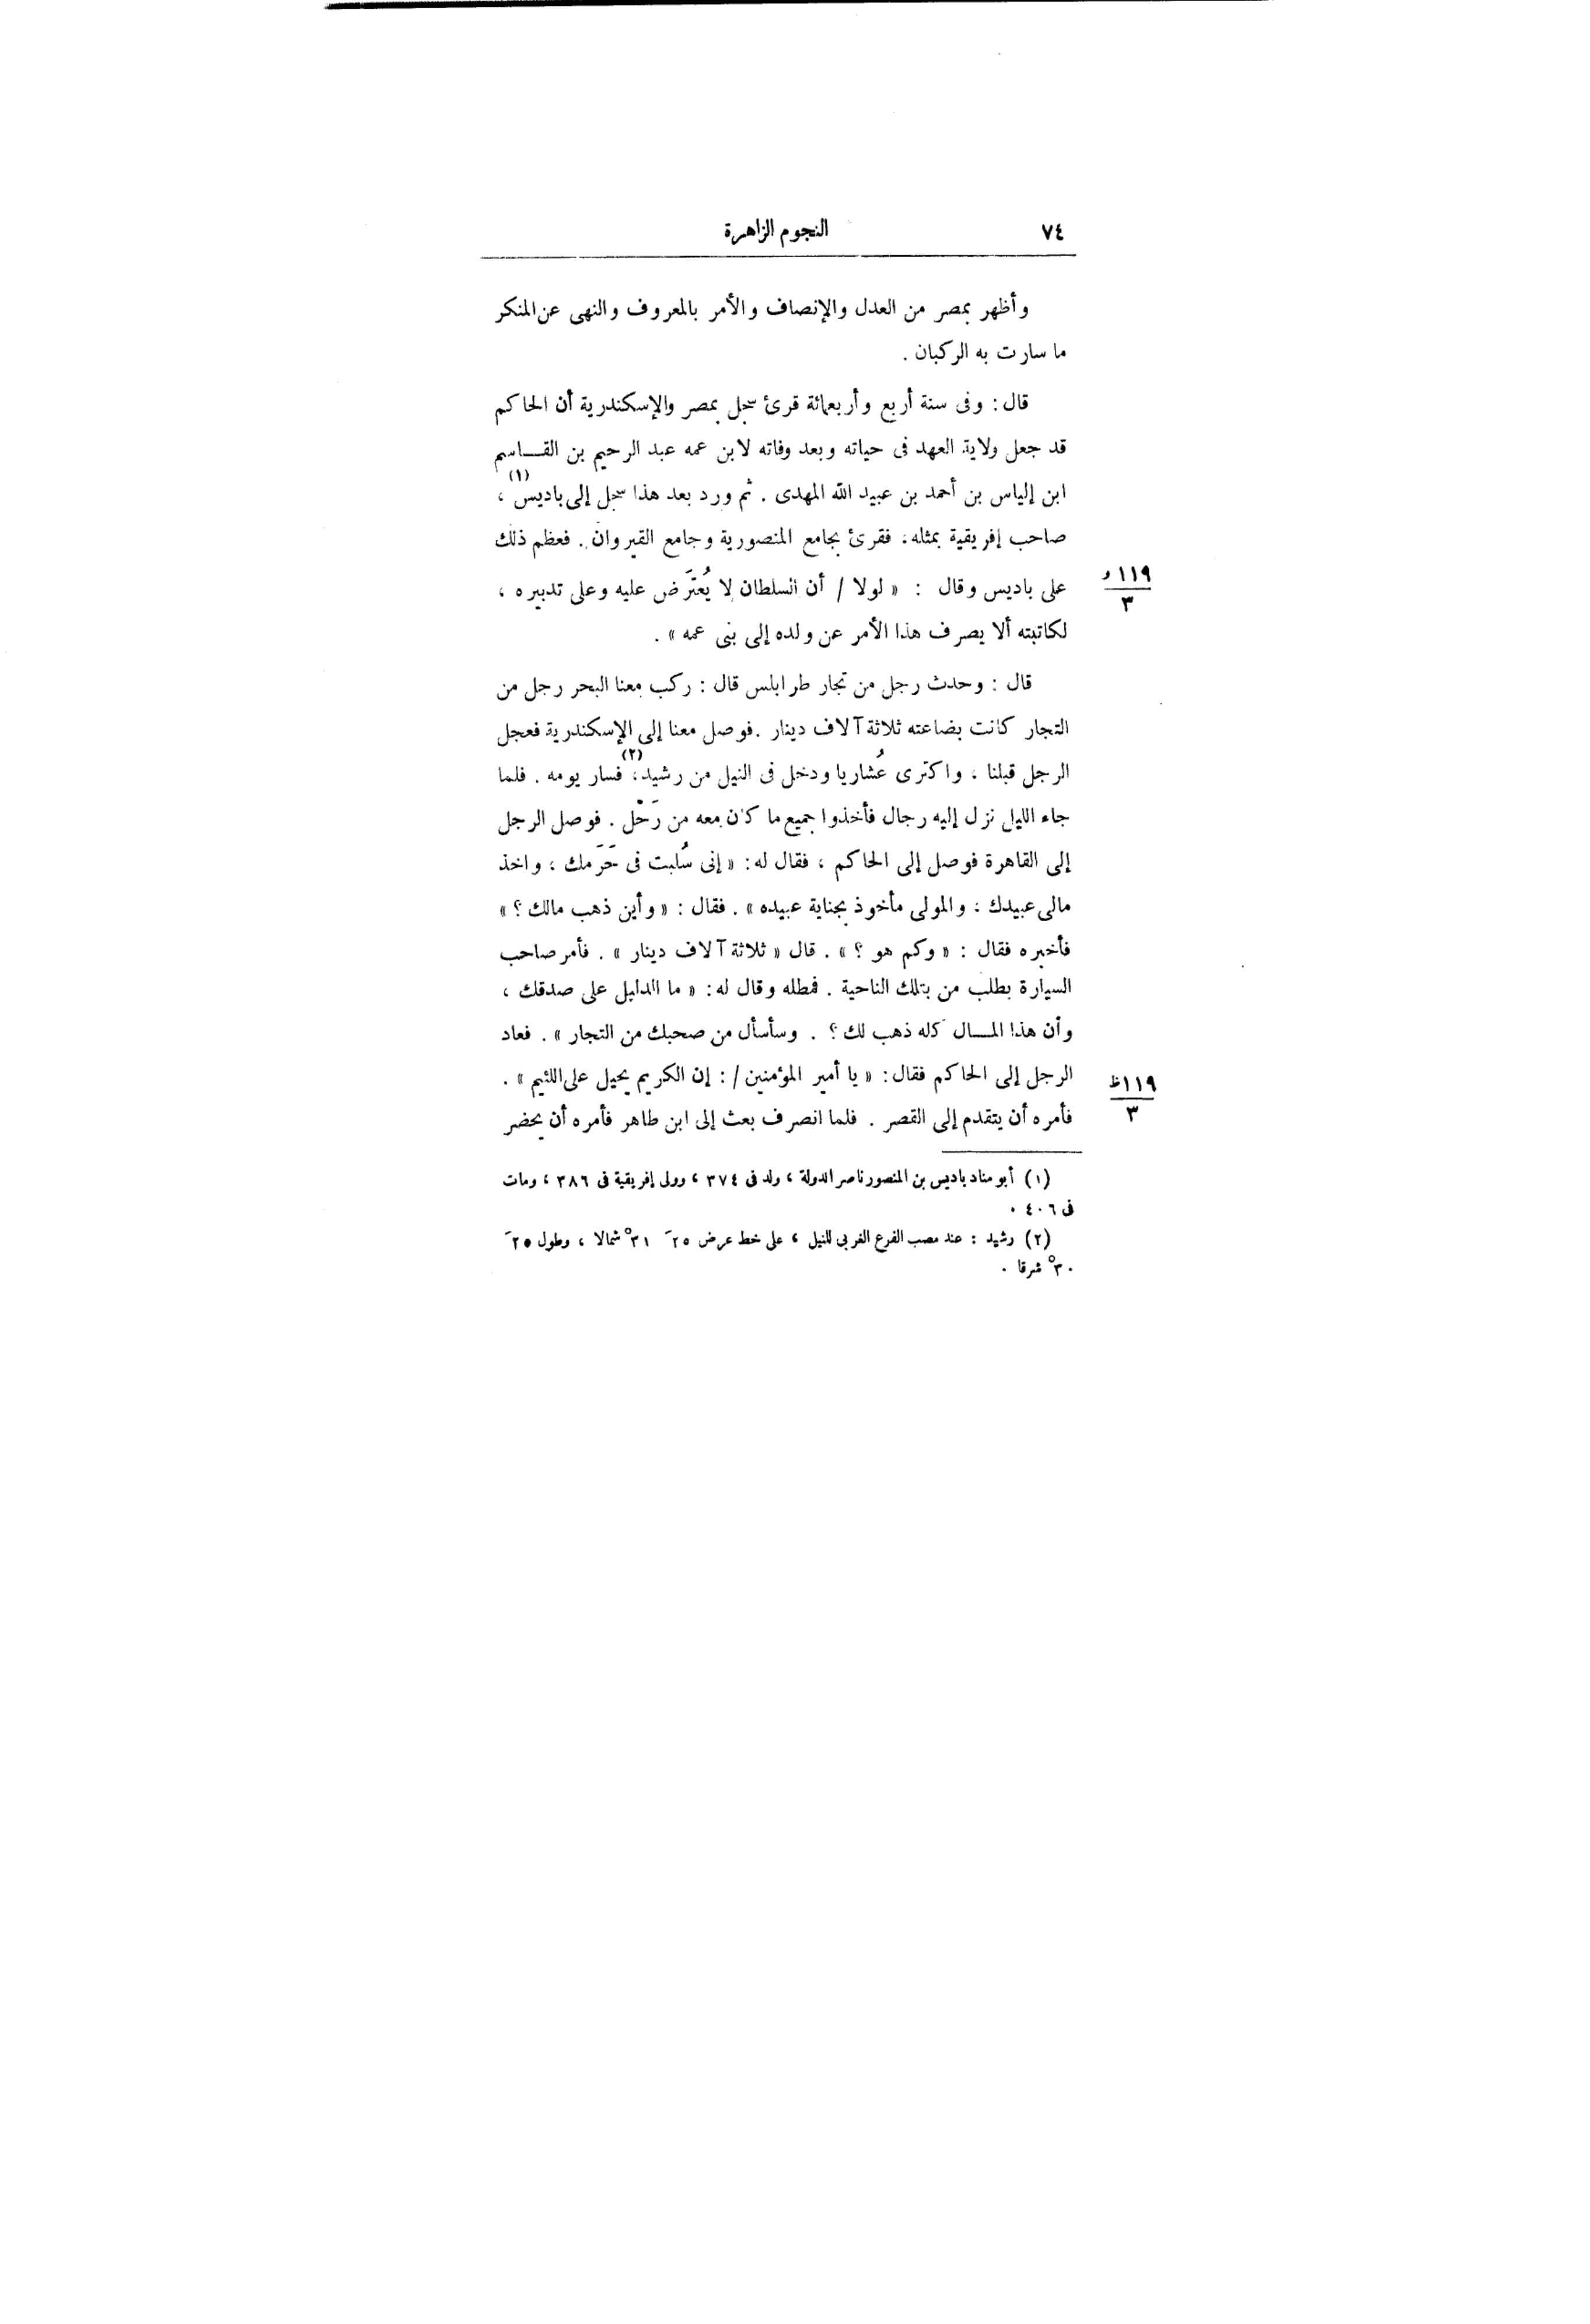 ٧٤
النجوم الزاهرة
وأظهر بمصر من العدل والإنصاف والأمر بالمعروف والنهى عن المنكر
ما سارت به الركبان .
قال : وفى سنة أربع وأربعمائة قرئ سجل بمصر والإسكندرية أن الحاكم
قد جعل ولاية العهد فى حياته وبعد وفاته لابن عمه عبد الرحيم بن القـــاسم
ابن إلياس بن أحمد بن عبيد الله المهدى . ثم ورد بعد هذا سجل إلى باديس (١) ،
صاحب إفريقية بمثله ، فقرئ بجامع المنصورية وجامع القيروان . فعظم ذلك
على باديس وقال : « لولا / أن السلطان لا يُعتَرض عليه وعلى تدبيره ،
١١٩ و
٣
لكاتبته ألا يصرف هذا الأمر عن ولده إلى بنى عمه » .
قال : وحدث رجل من تجار طرابلس قال : ركب معنا البحر رجل من
التجار كانت بضاعته ثلاثة آلاف دينار . فوصل معنا إلى الإسكندرية فعجل
الرجل قبلنا ، واكترى عُشاريا ودخل فى النيل من رشيد (٢) ، فسار يومه . فلما
جاء الليل نزل إليه رجال فأخذوا جميع ما كان معه من رَحْل . فوصل الرجل
إلى القاهرة فوصل إلى الحاكم ، فقال له : « إنى سُلبت فى حَرَمك ، واخذ
مالى عبيدك ، والمولى مأخوذ بجناية عبيده » . فقال : « وأين ذهب مالك ؟ »
فأخبره فقال : « وكم هو ؟ » . قال « ثلاثة آلاف دينار » . فأمر صاحب
السيارة بطلب من بتلك الناحية . فمطله وقال له : « ما الدليل على صدقك ،
وأن هذا المـــال كله ذهب لك ؟ . وسأسأل من صحبك من التجار » . فعاد
الرجل إلى الحاكم فقال : « يا أمير المؤمنين / : إن الكريم يحيل على اللئيم » .
١١٩ ظ
٣
فأمره أن يتقدم إلى القصر . فلما انصرف بعث إلى ابن طاهر فأمره أن يحضر
(١) أبو مناد باديس بن المنصور ناصر الدولة ، ولد فى ٣٧٤ ، وولى إفريقية فى ٣٨٦ ، ومات
فى ٤٠٦ .
(٢) رشيد : عند مصب الفرع الغربى للنيل ، على خط عرض ٢٥َ ٣١° شمالا ، وطول ٢٥َ
٣٠° شرقا .